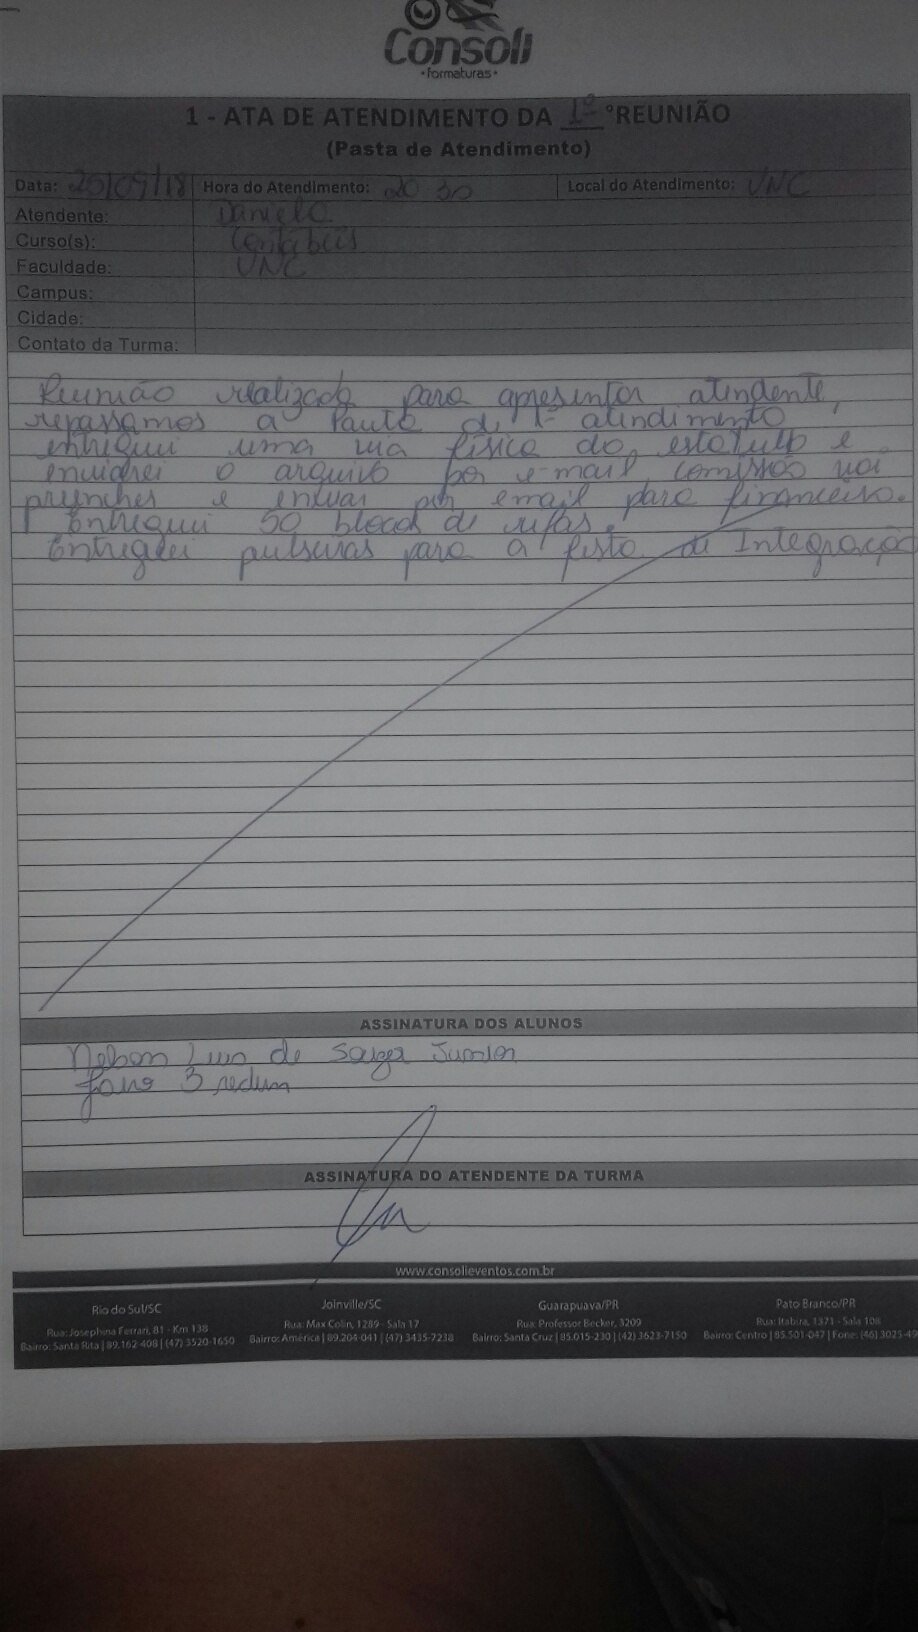 Consoli
•formaturas•
1 - ATA DE ATENDIMENTO DA 1º °REUNIÃO
(Pasta de Atendimento)
Data: 20/09/18 Hora do Atendimento: 20 30 Local do Atendimento: UNC
Atendente: Daniela
Curso(s): Contábeis
Faculdade: UNC
Campus:
Cidade:
Contato da Turma:
Reunião realizada para apresentar atendente,
repassamos a Pauta de 1º atendimento
entreguei uma via física do estatuto e
enviarei o arquivo por e-mail, comissão vai
preencher e enviar por email para financeiro.
Entreguei 50 blocos de rifas.
Entreguei pulseiras para a festa de Integração
ASSINATURA DOS ALUNOS
Nelson Luis de Souza Junior
ASSINATURA DO ATENDENTE DA TURMA
www.consolieventos.com.br
Rio do Sul/SC
Rua: Josephina Ferrari, 81 - Km 138
Bairro: Santa Rita | 89.162-408 | (47) 3520-1650
Joinville/SC
Rua: Max Colin, 1289 - Sala 17
Bairro: América | 89.204-041 | (47) 3435-7238
Guarapuava/PR
Rua: Professor Becker, 3209
Bairro: Santa Cruz | 85.015-230 | (42) 3623-7150
Pato Branco/PR
Rua: Itabira, 1371 - Sala 108
Bairro: Centro | 85.501-047 | Fone: (46) 3025-49